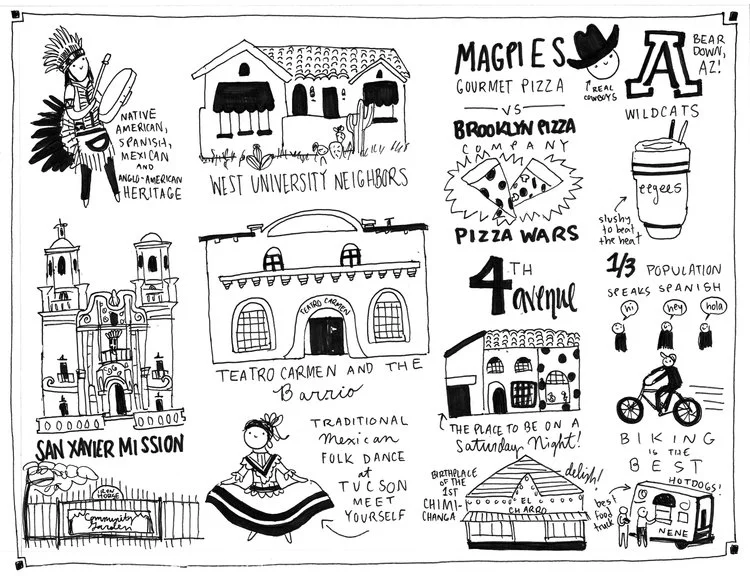 NATIVE
AMERICAN,
SPANISH,
MEXICAN
AND
ANGLO-AMERICAN
HERITAGE
WEST UNIVERSITY NEIGHBORS
MAGPIES
GOURMET PIZZA
VS
BROOKLYN PIZZA
COMPANY
PIZZA WARS
REAL
COWBOYS
A
BEAR
DOWN,
AZ!
WILDCATS
eegees
slushy
to beat
the heat
SAN XAVIER MISSION
TEATRO CARMEN
TEATRO CARMEN AND THE
Barrio
4TH
avenue
THE PLACE TO BE ON A
Saturday Night!
1/3 POPULATION
SPEAKS SPANISH
hi
hey
hola
BIKING
IS THE
BEST
IRON
HORSE
Community
Garden
TRADITIONAL
Mexican
FOLK DANCE
at
TUCSON
MEET
YOURSELF
BIRTHPLACE
OF THE
1ST
CHIMI-
CHANGA
delish!
EL
CHARRO
HOTDOGS!
best
food
truck
NENE